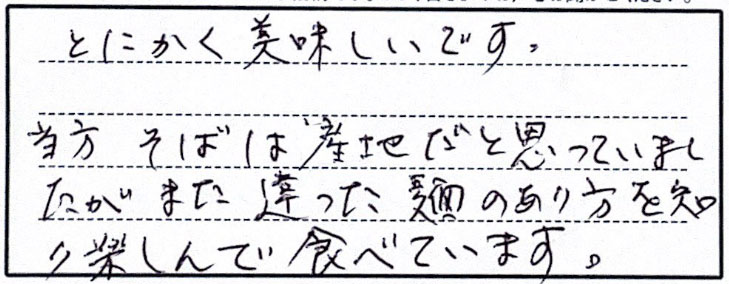 とにかく美味しいです。
当方そばは産地だと思っていまし
たがまた違った麺のあり方を知
り楽しんで食べています。